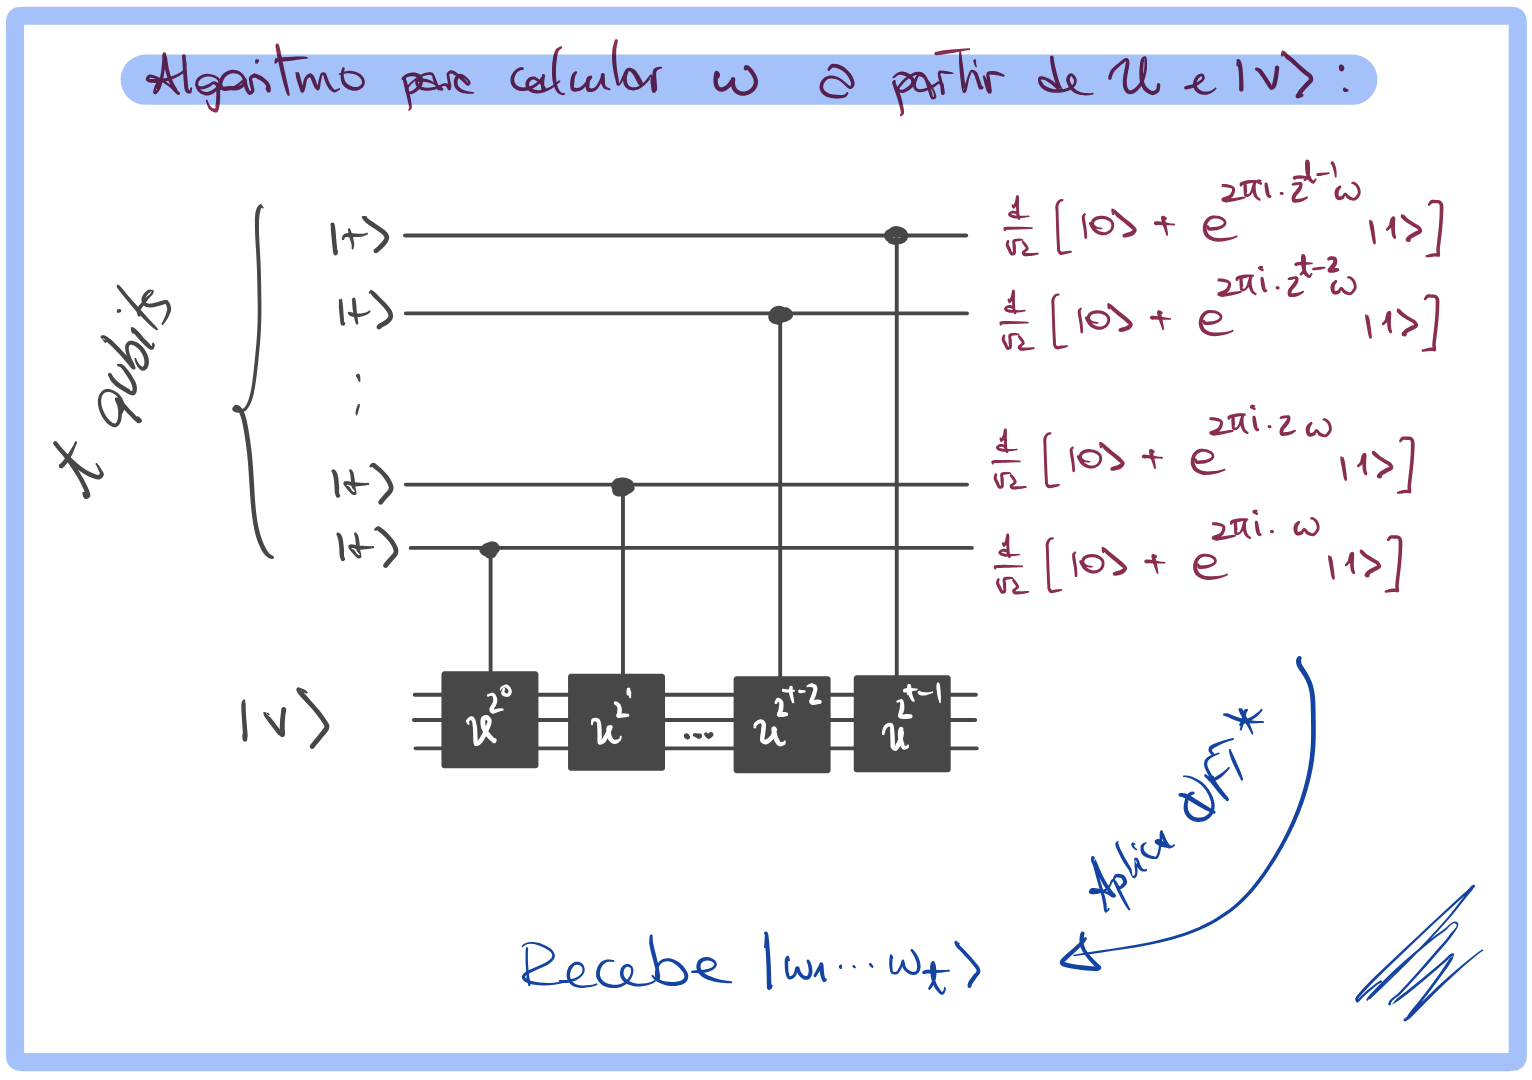 Algoritmo para calcular ω a partir de U e |v⟩:
t qubits
|+⟩ 1/√2 [ |0⟩ + e^{2πi·2^{t-1}ω} |1⟩ ]
|+⟩ 1/√2 [ |0⟩ + e^{2πi·2^{t-2}ω} |1⟩ ]
⋮
|+⟩ 1/√2 [ |0⟩ + e^{2πi·2ω} |1⟩ ]
|+⟩ 1/√2 [ |0⟩ + e^{2πi·ω} |1⟩ ]
|v⟩ U^{2^0} U^{2^1} ... U^{2^{t-2}} U^{2^{t-1}}
Aplica QFT*
Recebe |ω1...ωt⟩